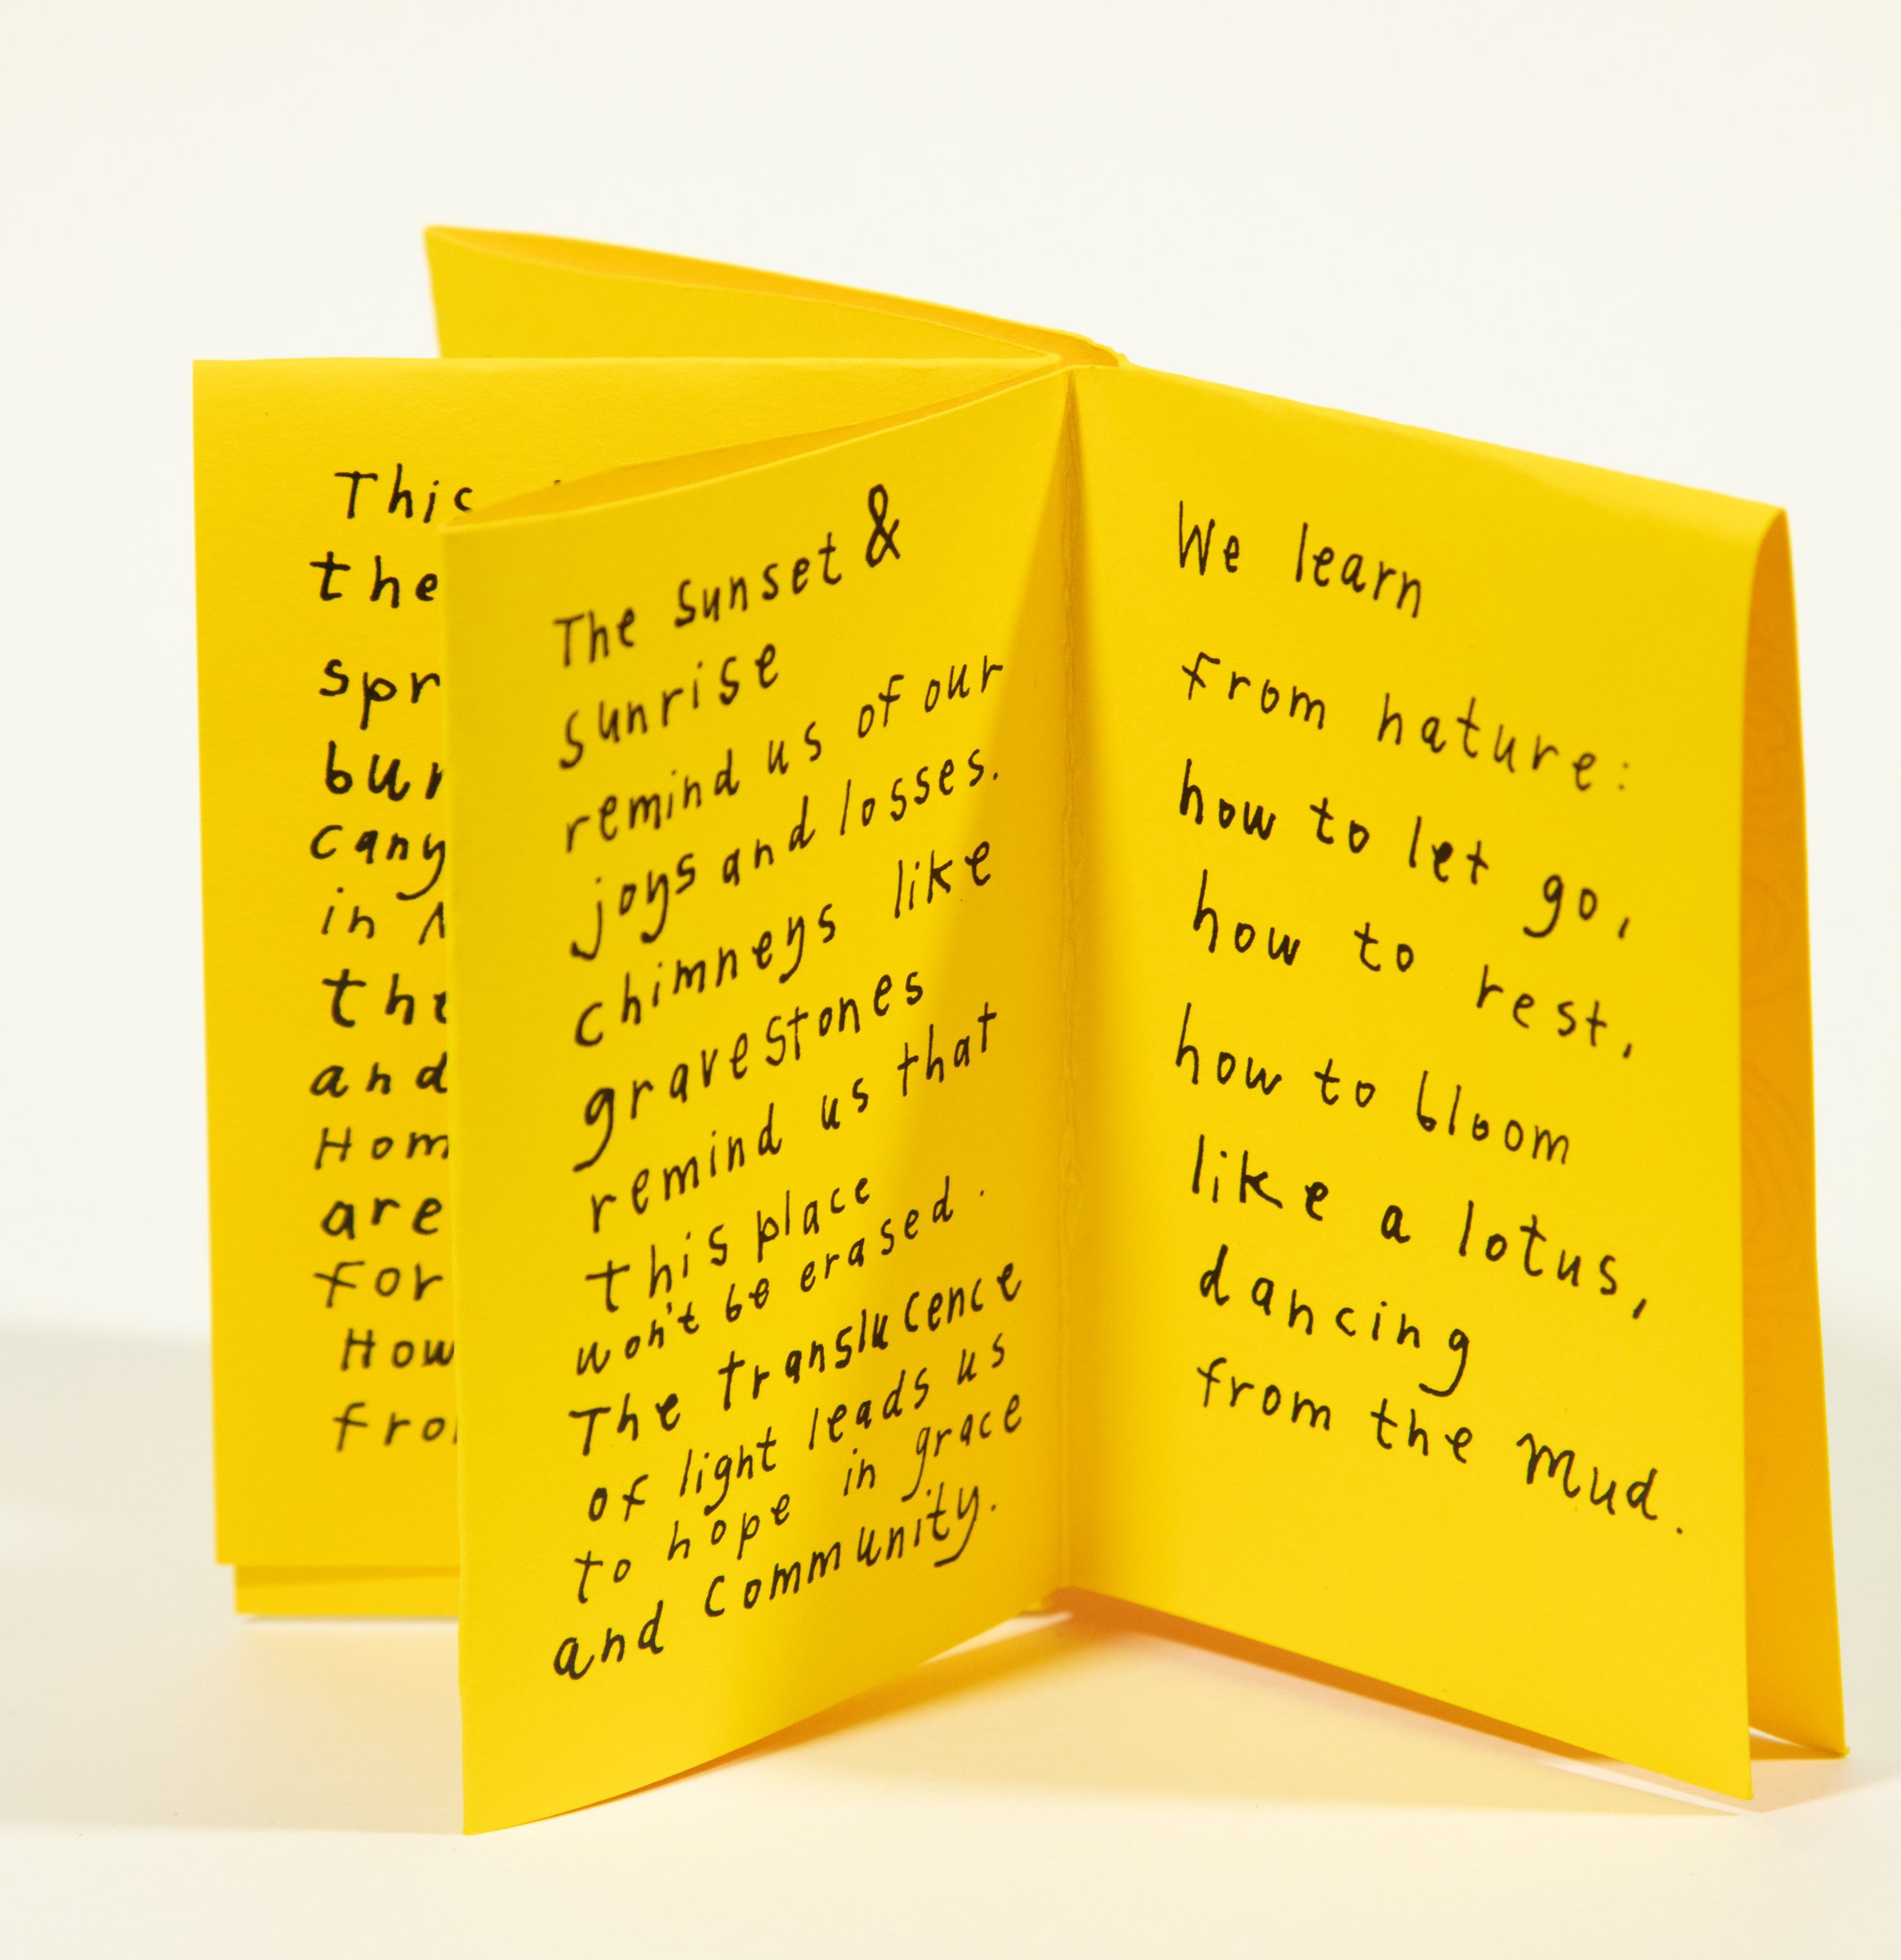 the
in
the
and
are
for
The Sunset &
sunrise
remind us of our
joys and losses.
chimneys like
gravestones
remind us that
this place
won't be erased.
The translucence
of light leads us
to hope in grace
and community.
We learn
from nature:
how to let go,
how to rest,
how to bloom
like a lotus,
dancing
from the mud.